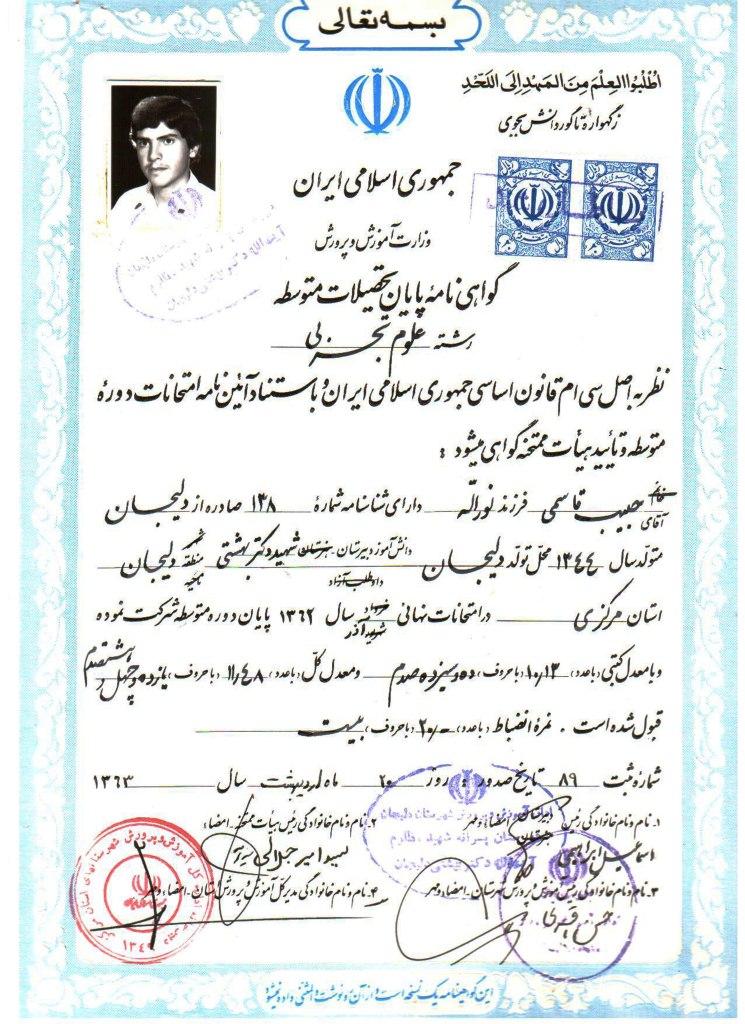 بسمه تعالی
اُطْلُبُوا العِلْمَ مِنَ المَهْدِ اِلَی اللَّحَدِ
زگهواره تا گور دانش بجوی
جمهوری اسلامی ایران
وزارت آموزش و پرورش
گواهی نامهٔ پایان تحصیلات متوسطه
رشته علوم تجربی
نظر به اصل سی ام قانون اساسی جمهوری اسلامی ایران و با استناد آئین نامه امتحانات دورهٔ
متوسطه و تأیید هیأت ممتحنه گواهی میشود :
خانم آقای حبیب قاسمی فرزند نوراله دارای شناسنامه شمارهٔ ۱۳۸ صادره از دلیجان
متولد سال ۱۳٤٤ محل تولد دلیجان دانش آموز دبیرستان هنرستان داوطلب آزاد شهید دکتر بهشتی شهر منطقه ناحیه دلیجان
استان مرکزی در امتحانات نهائی خرداد شهریور سال ۱۳٦۲ پایان دوره متوسطه شرکت نموده
و با معدل کتبی (با عدد) ۱۰/۱۳ (با حروف) ده و سیزده صدم و معدل کل (با عدد) ۱۱/٤۸ (با حروف) یازده و چهل و هشت صدم
قبول شده است . نمرهٔ انضباط (با عدد) ۲۰/۰ (با حروف) بیست
شمارهٔ ثبت ۸۹ تاریخ صدور : روز ۲۰ ماه اردیبهشت سال ۱۳٦۳
۱ـ نام و نام خانوادگی رئیس دبیرستان امضاء و مهر
اسماعیل ابراهیمی
۲ـ نام و نام خانوادگی رئیس هیأت ممتحنه ـ امضاء
سید امیر جلالی
۳ـ نام و نام خانوادگی رئیس آموزش و پرورش شهرستان ـ امضاء و مهر
۴ـ نام و نام خانوادگی مدیر کل آموزش و پرورش استان ـ امضاء و مهر
این گواهینامه یک نسخه است و از آن رونوشت و المثنی داده نمیشود